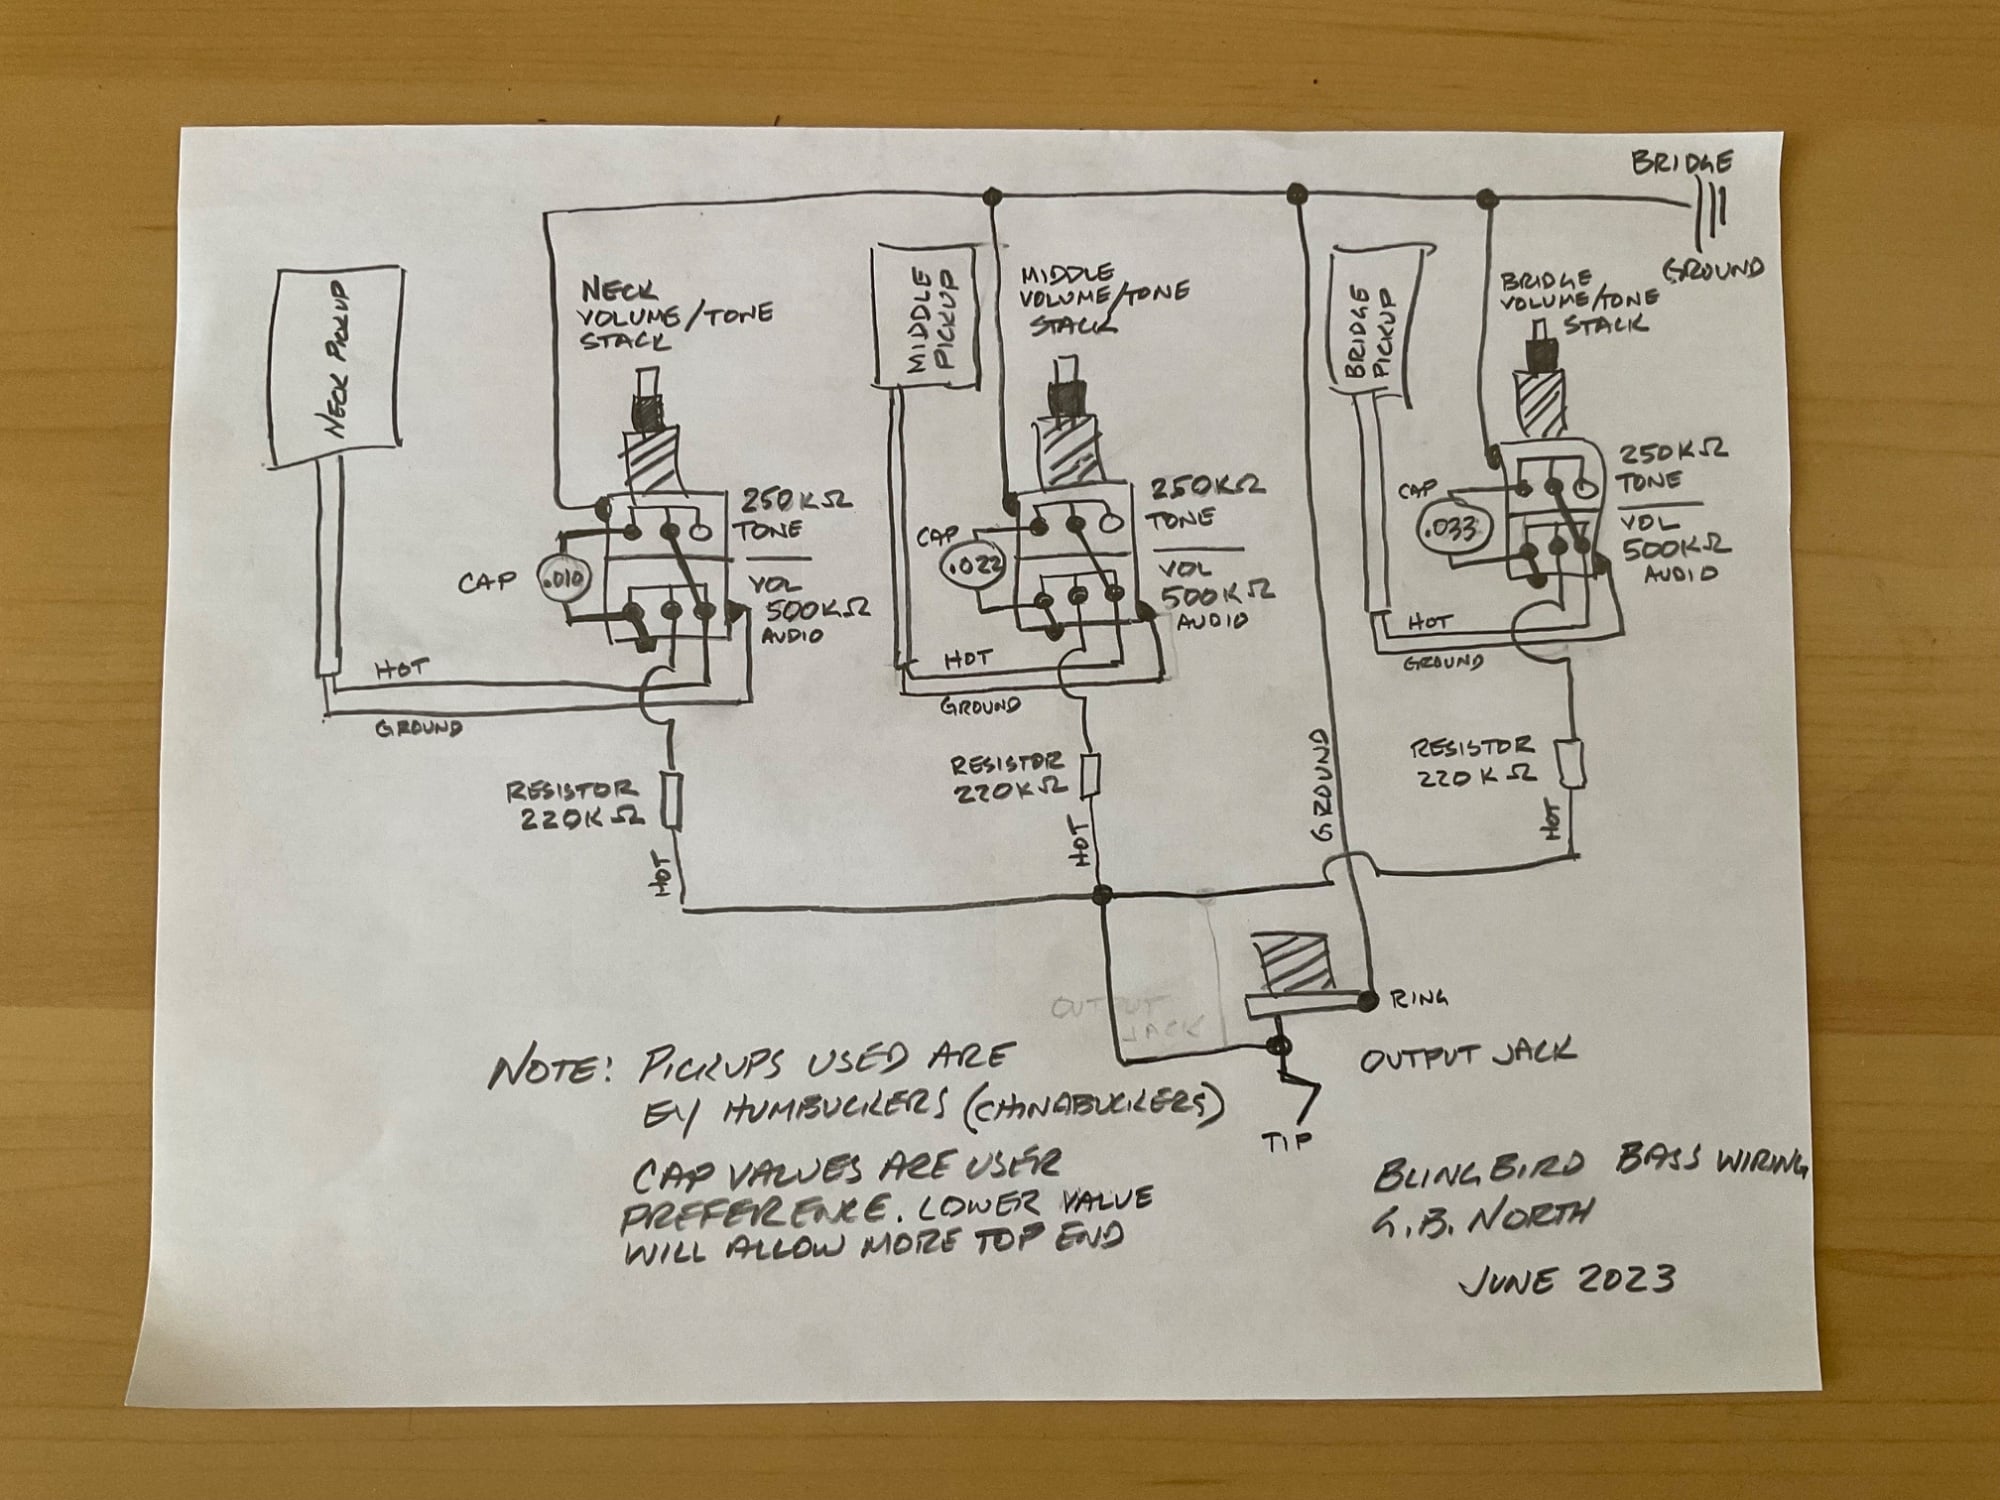 BRIDGE
GROUND
NECK PICKUP
NECK
VOLUME/TONE
STACK
250KΩ
TONE
VOL
500KΩ
AUDIO
CAP
.010
HOT
GROUND
RESISTOR
220KΩ
HOT
MIDDLE
PICKUP
MIDDLE
VOLUME/TONE
STACK
250KΩ
TONE
VOL
500KΩ
AUDIO
CAP
.022
HOT
GROUND
RESISTOR
220KΩ
HOT
GROUND
BRIDGE
PICKUP
BRIDGE
VOLUME/TONE
STACK
250KΩ
TONE
VOL
500KΩ
AUDIO
CAP
.033
HOT
GROUND
RESISTOR
220KΩ
HOT
RING
OUTPUT JACK
TIP
OUTPUT
JACK
NOTE: PICKUPS USED ARE
EY HUMBUCKERS (CHINABUCKERS)
CAP VALUES ARE USER
PREFERENCE. LOWER VALUE
WILL ALLOW MORE TOP END
BLINGBIRD BASS WIRING
G.B. NORTH
JUNE 2023